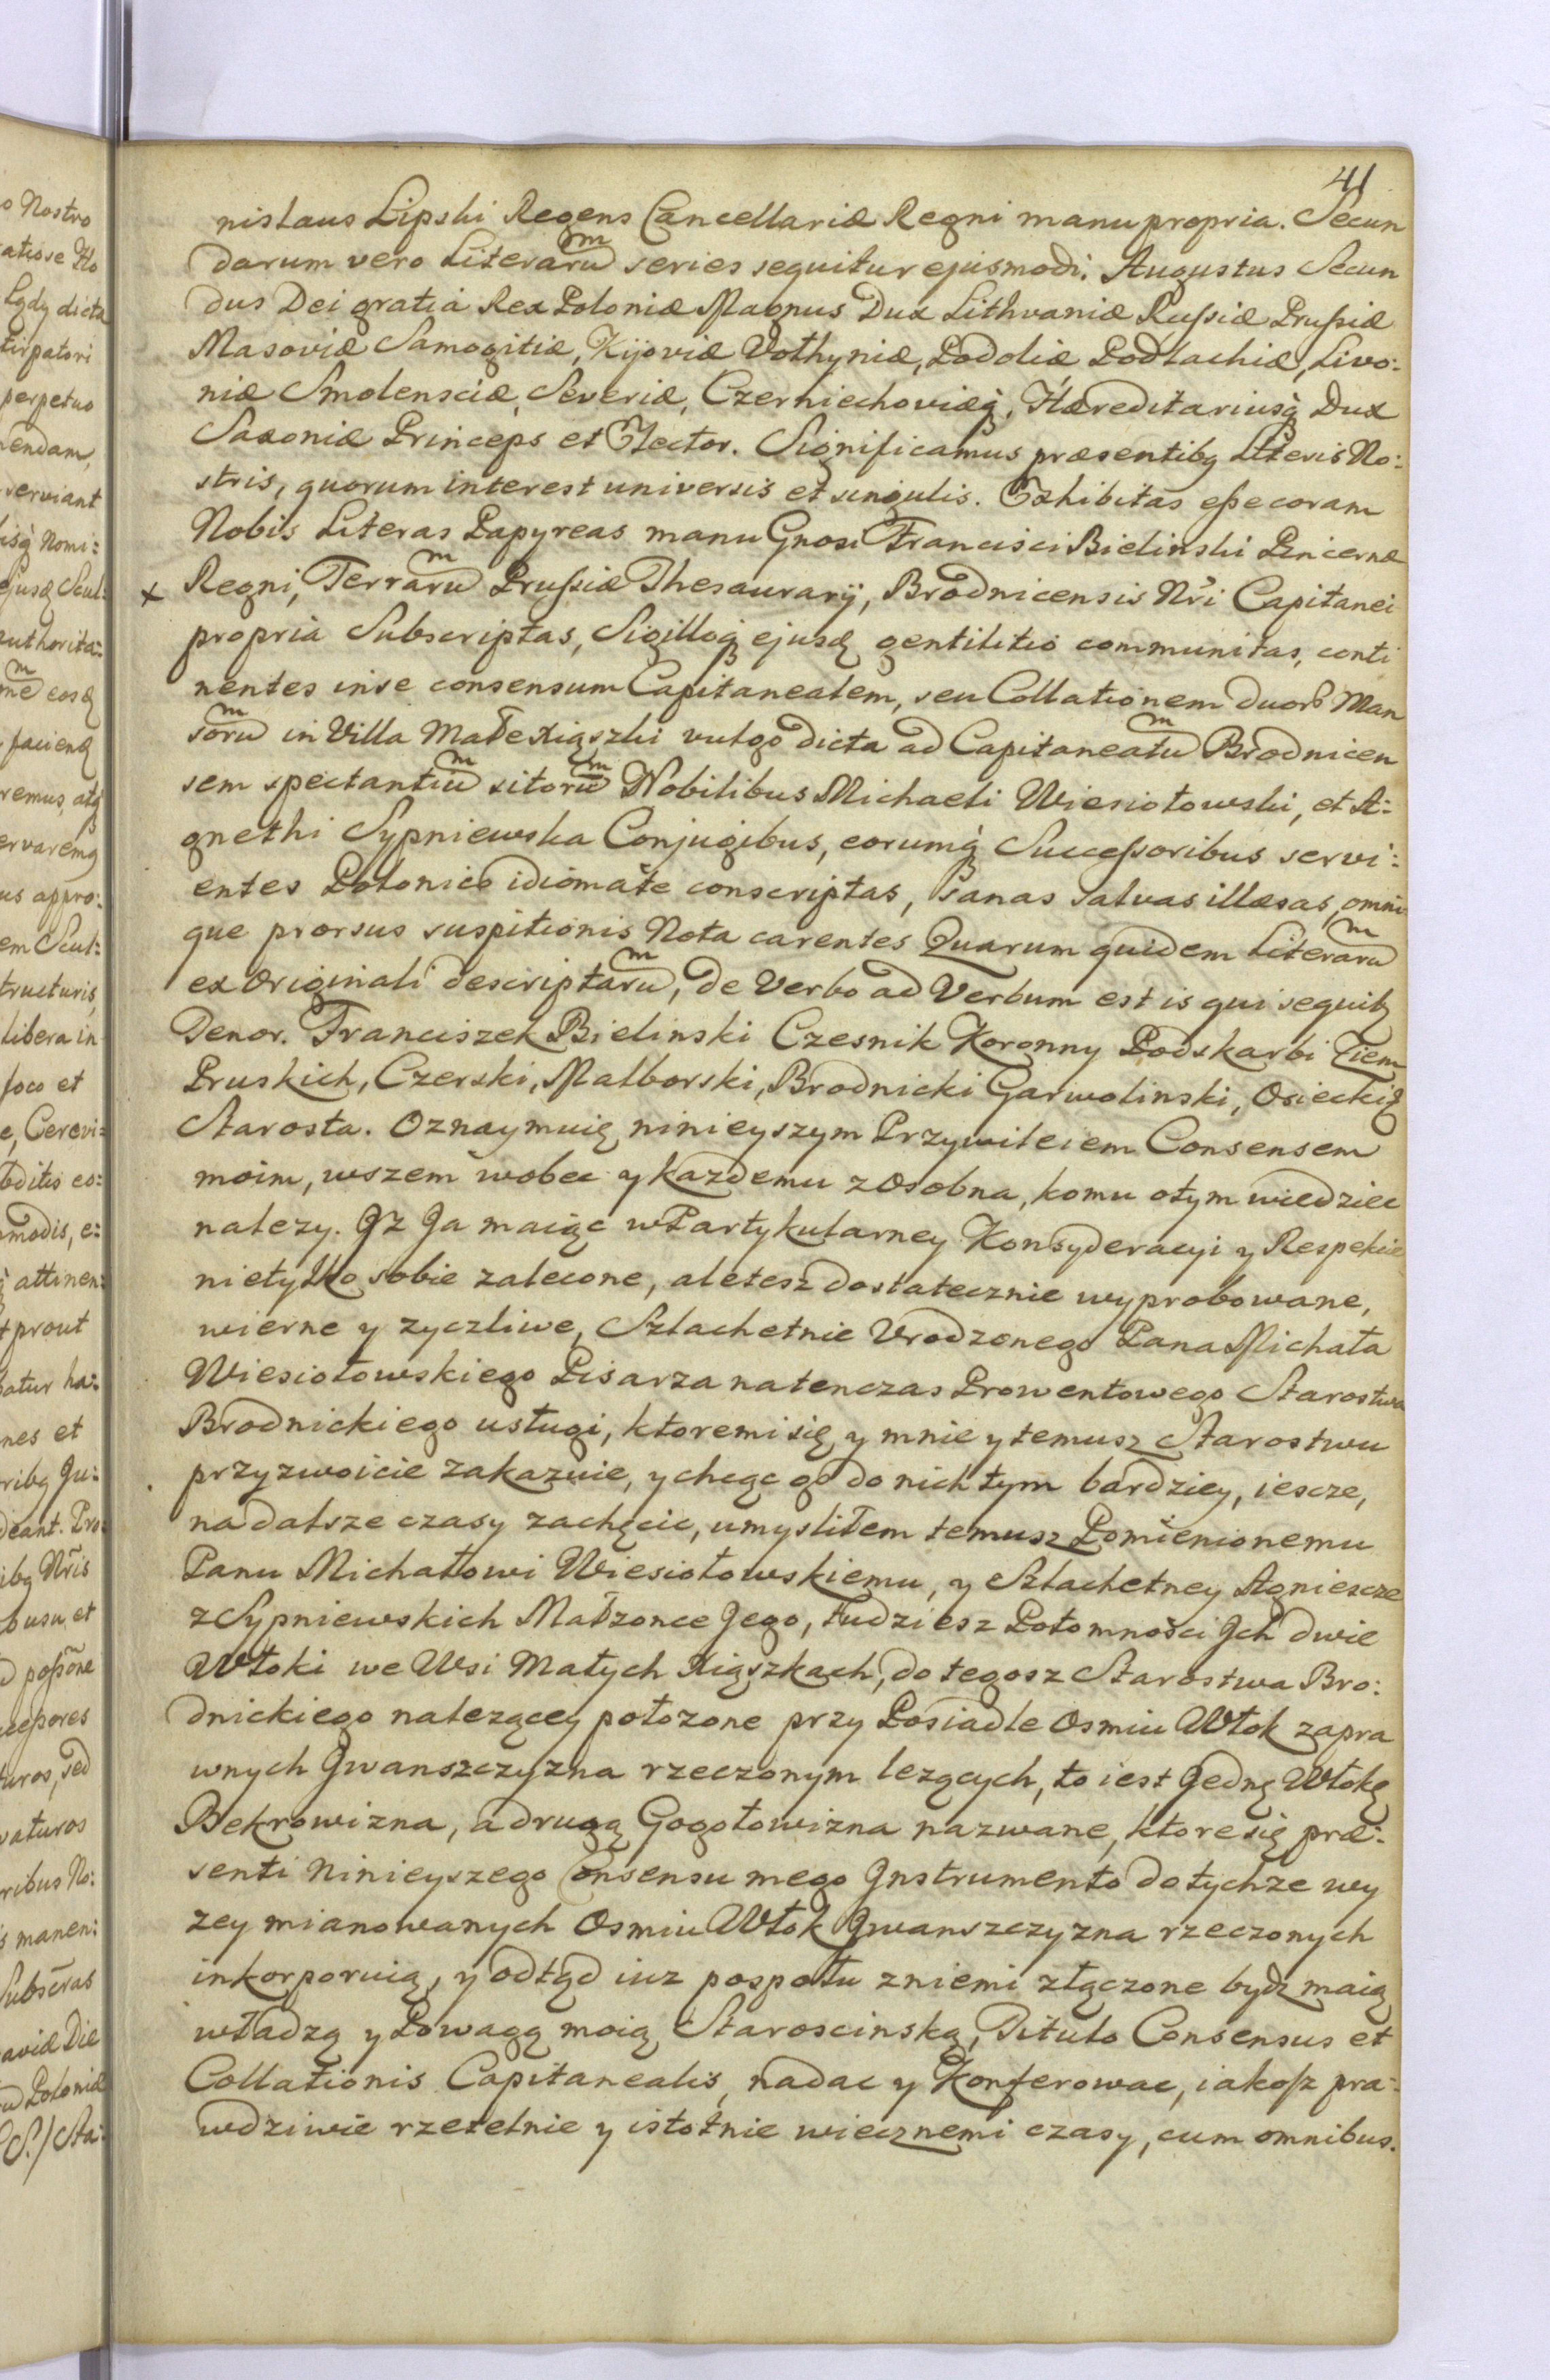 41
nislaus Lipski Regens Cancellariæ Regni manu propria. Secun
darum vero Literarum series sequitur ejusmodi. Augustus Secun
dus Dei gratiâ Rex Poloniæ Magnus Dux Lithvaniæ Rußiæ Prußiæ
Masoviæ Samogitiæ, Kijoviæ Volhyniæ, Podoliæ, Podlachiæ, Livo:
niæ Smolensciæ, Severiæ, Czerniechoviæq, Hæreditariusq Dux
Saxoniæ Princeps et Elector. Significamus præsentibg Literis No:
stris, quorum interest universis et singulis. Exhibitas eße coram
Nobis Literas Papyreas manu Gnosi Francisci Bielinski Pincernæ
x Regni, Terrarum Prußiæ Thesaurarÿ, Brodnicensis Nri Capitanei
propria Subscriptas, Sigilloq ejusq gentilitio communitas, conti
nentes in se consensum Capitanealem, seu Collationem duorb Man
sorum in Villa Małe Xiąszki vulgo dicta ad Capitaneatum Brodnicen
sem spectantium sitorum Nobilibus Michaeli Wiesiołowski, et A:
gnethi Sypniewska Conjugibus, eorumq Succeßoribus servi:
entes Polonico idiomate conscriptas, sanas salvas illæsas, omni
que prorsus suspitionis Nota carentes Quarum quidem Literarum
ex Originali descriptarum, de Verbo ad Verbum est is qui sequitq
Tenor. Franciszek Bielinski Czesnik Koronny Podskarbi Ziem
Pruskich, Czerski, Malborski, Brodnicki Garwolinski, Osieckię
Starosta. Oznaymuię ninieyszym Przywileiem Consensem
moim, wszem wobec y kazdemu z Osobna, komu o tym wiedziec
nalezy. Jz Ja maiąc w Partykularney Konsyderacyi y Respekcie
nietylko sobie zalecone, ale tesz dostatecznie wyprobowane,
wierne y zyczliwe, Szlachetnie Vrodzonego Pana Michała
Wiesiołowskiego Pisarza natenczas Prowentowego Starostwa
Brodnickiego usługi, ktoremi się y mnie y temusz Starostwu
przyzwoicie zakazuie, y chcąc go do nich tym bardziey, iescze,
na dalsze czasy zachęcic, umysliłem temusz Pomienionemu
Panu Michałowi Wiesiołowskiemu, y Szlachetney Agniescze
z Sypniewskich Małzonce Jego, tudziesz Potomności Jch dwie
Włoki we Wsi Małych Xiąszkach, do tegosz Starostwa Bro:
dnickiego nalezącey połozone przy Posiadle Osmiu Włok zapra
wnych Jwanszczyzna rzeczonym lezących, to iest Jednę Włokę
Bekrowizna, a drugą Gogołowizna nazwane, ktore się præ:
senti Ninieyszego Consensu mego Jnstrumento do tychze wy
zey mianowanych Osmiu Włok Jwanszczyzna rzeczonych
inkorporuią, y odtąd iuz pospołu z niemi złączone bydz maią
władzą y Powagą moią Staroscinską, Titulo Consensus et
Collationis Capitanealis, nadac y Konferowac, iakoſz pra:
wdziwie rzetelnie y istotnie wiecznemi czasy, cum omnibus.